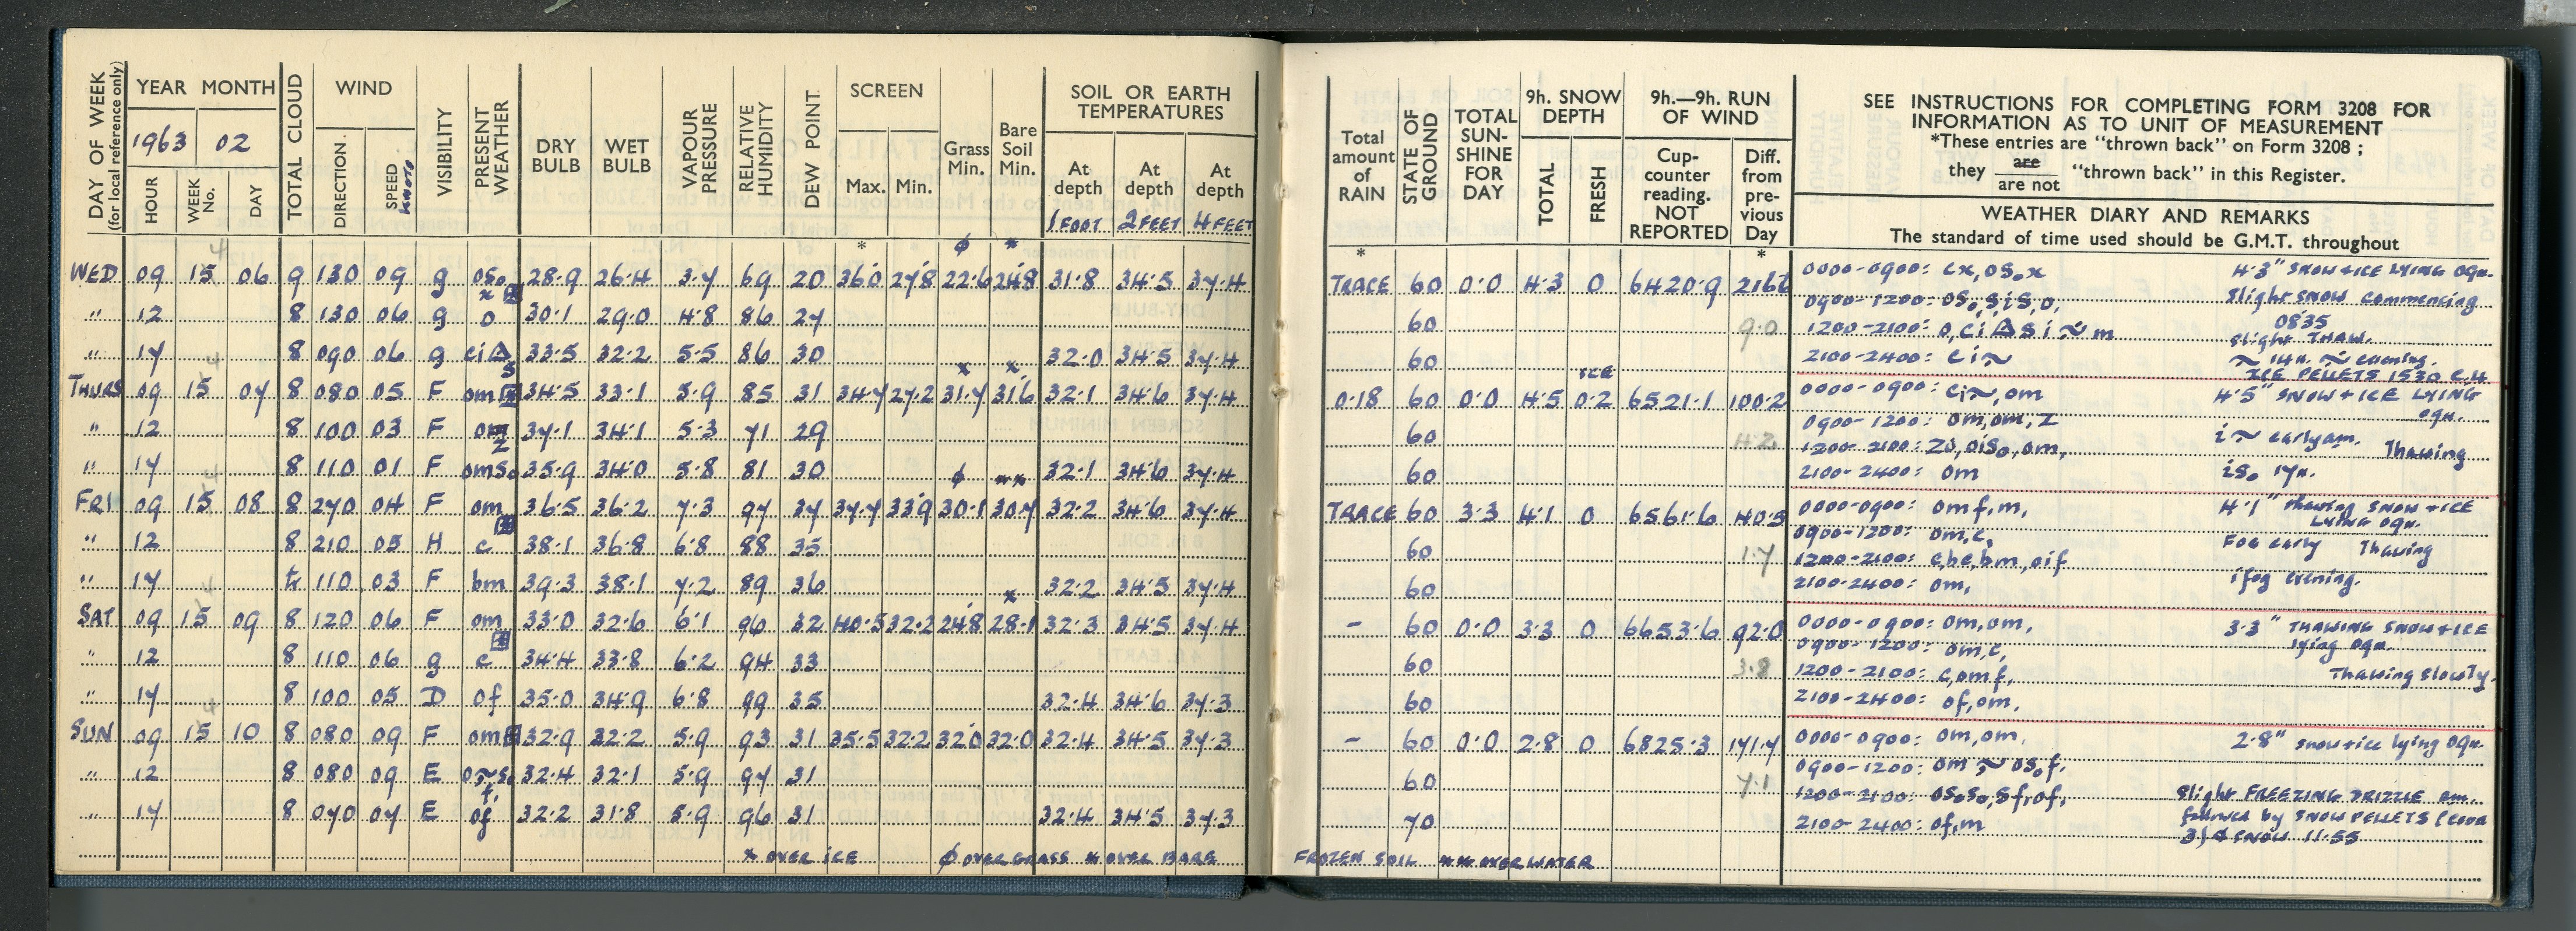 DAY OF WEEK (for local reference only) YEAR MONTH TOTAL CLOUD WIND VISIBILITY PRESENT WEATHER DRY BULB WET BULB VAPOUR PRESSURE RELATIVE HUMIDITY DEW POINT SCREEN Grass Min. Bare Soil Min. SOIL OR EARTH TEMPERATURES
1963 02
HOUR WEEK No. DAY DIRECTION SPEED KNOTS Max. Min. At depth At depth At depth
1 FOOT 2 FEET 4 FEET
* ϕ *
4
WED 09 15 06 9 130 09 g oso x 28.9 26.4 3.7 69 20 36.0 27.8 22.6 24.8 31.8 34.5 37.4
" 12 8 130 06 g o 30.1 29.0 4.8 86 27
" 17 8 090 06 g ci△s 33.5 32.2 5.5 86 30 32.0 34.5 37.4
4 x x
THURS 09 15 07 8 080 05 F om 34.5 33.1 5.9 85 31 34.7 27.2 31.7 31.6 32.1 34.6 37.4
" 12 8 100 03 F z 37.1 34.1 5.3 71 29
" 17 8 110 01 F omso 35.9 34.0 5.8 81 30 32.1 34.6 37.4
4 ϕ **
FRI 09 15 08 8 270 04 F om 36.5 36.2 7.3 97 34 37.7 33.9 30.1 30.7 32.2 34.6 37.4
" 12 8 210 05 H c 38.1 36.8 6.8 88 35
" 17 tr 110 03 F bm 39.3 38.1 7.2 89 36 32.2 34.5 37.4
4 x
SAT 09 15 09 8 120 06 F om 33.0 32.6 6.1 96 32 40.5 32.2 24.8 28.1 32.3 34.5 37.4
" 12 8 110 06 g c 34.4 33.8 6.2 94 33
" 17 8 100 05 D of 35.0 34.9 6.8 99 35 32.4 34.6 37.3
4
SUN 09 15 10 8 080 09 F om 32.9 32.2 5.9 93 31 35.5 32.2 32.0 32.0 32.4 34.5 37.3
" 12 8 080 09 E 32.4 32.1 5.9 97 31
" 17 8 070 07 E of 32.2 31.8 5.9 96 31 32.4 34.5 37.3
x OVER ICE ϕ OVER GRASS * OVER BARE
Total amount of RAIN STATE OF GROUND TOTAL SUN-SHINE FOR DAY 9h. SNOW DEPTH 9h.—9h. RUN OF WIND
TOTAL FRESH Cup-counter reading. NOT REPORTED Diff. from pre-vious Day
SEE INSTRUCTIONS FOR COMPLETING FORM 3208 FOR
INFORMATION AS TO UNIT OF MEASUREMENT
*These entries are "thrown back" on Form 3208 ;
they are / are not "thrown back" in this Register.
WEATHER DIARY AND REMARKS
The standard of time used should be G.M.T. throughout
* *
TRACE 60 0.0 4.3 0 6420.9 216.6 0000-0900: cx, oso x 4.3" SNOW+ICE LYING 09h.
0900-1200: oso, sis, o, Slight SNOW commencing
60 9.0 0835
1200-2100: o, ci△si ~ m Slight THAW.
60 2100-2400: ci~ ~ 14h. ~ evening.
ICE ICE PELLETS 1530 C.H
0.18 60 0.0 4.5 0.2 6521.1 100.2 0000-0900: ci~, om 4.5" SNOW+ICE LYING 09h.
60 4.2 0900-1200: om, om, z i~ early am. Thawing
1200-2100: zo, oiso, om,
60 2100-2400: om iso 17h.
TRACE 60 3.3 4.1 0 6561.6 40.5 0000-0900: omf, m, 4.1" thawing SNOW+ICE LYING 09h.
0900-1200: om, c,
60 1.7 1200-2100: cbc, bm, oif FOG early Thawing
60 2100-2400: om, ifog evening.
- 60 0.0 3.3 0 6653.6 92.0 0000-0900: om, om, 3.3" THAWING SNOW+ICE lying 09h.
0900-1200: om, c,
60 3.8 1200-2100: c, omf, Thawing slowly.
60 2100-2400: of, om,
- 60 0.0 2.8 0 6825.3 171.7 0000-0900: om, om, 2.8" snow+ice lying 09h.
60 7.1 0900-1200: om ~ osof,
1200-2100: ososo, sf, of, Slight FREEZING DRIZZLE am.
70 2100-2400: of, m followed by SNOW PELLETS
& SNOW 11.55
FROZEN SOIL ** OVER WATER